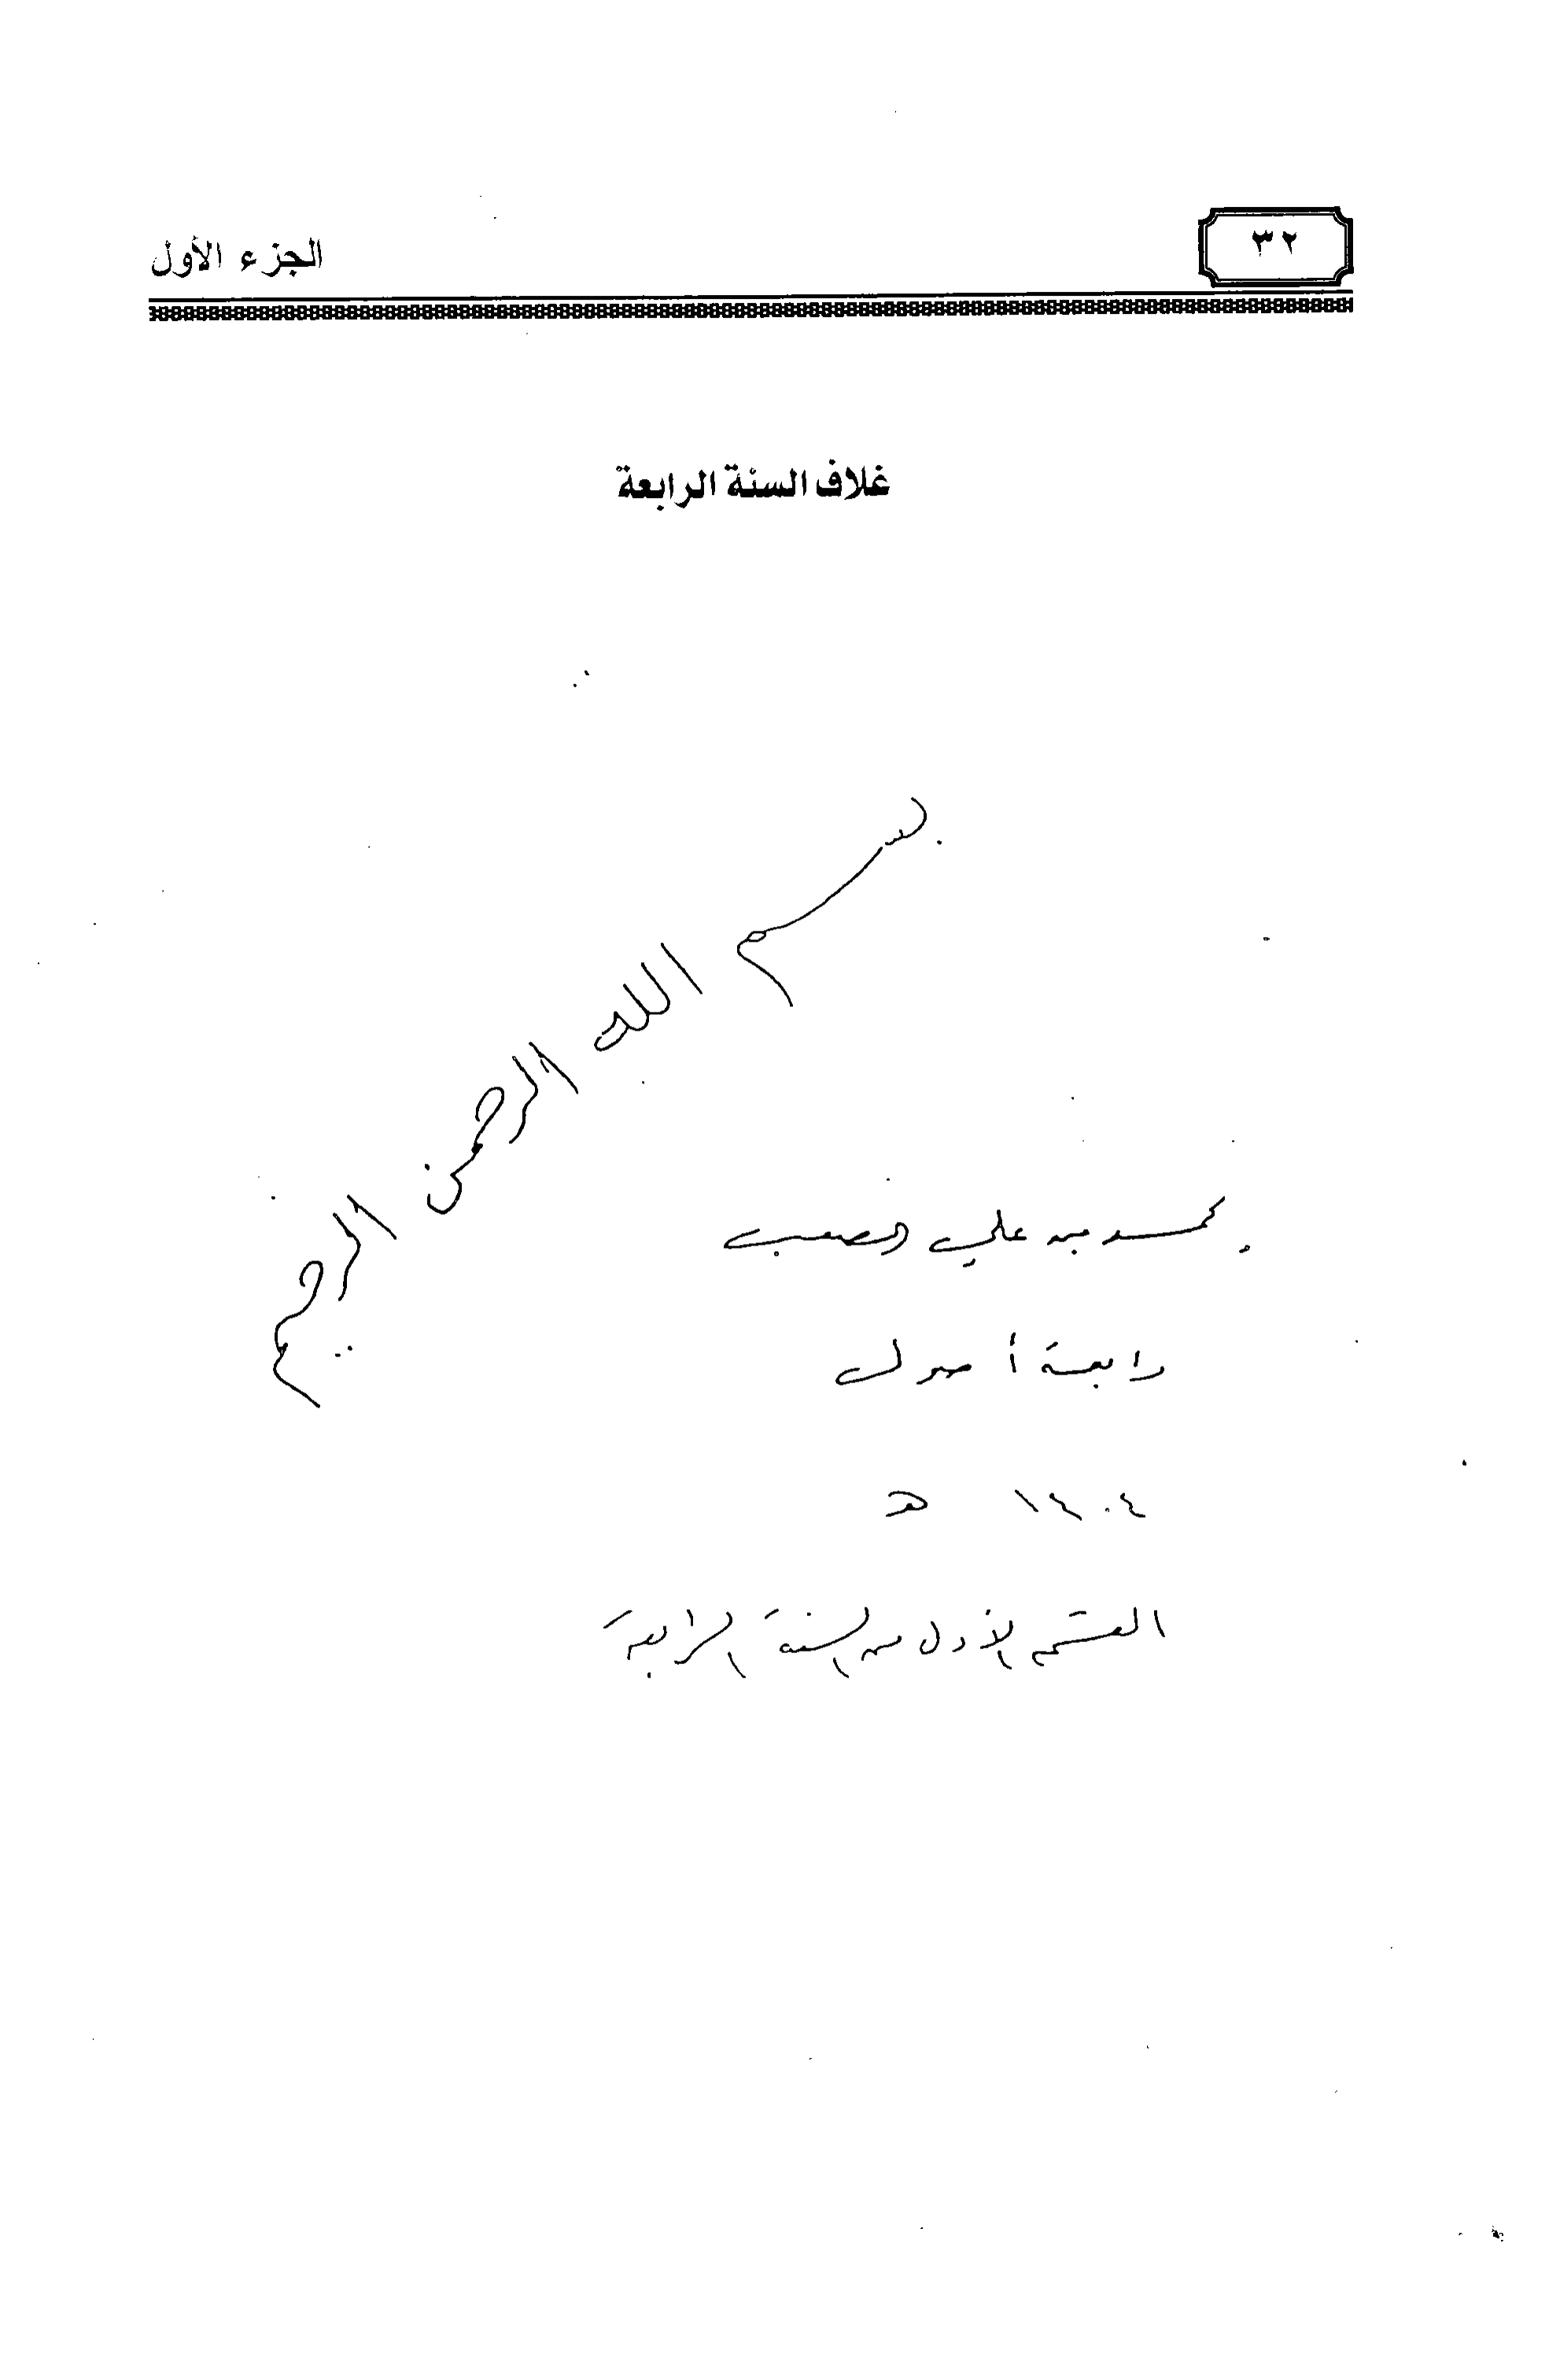 ٣٢
الجزء الأول
غلاف السنة الرابعة
بسم الله الرحمن الرحيم
محمد بن علي الصعب
رابعة أصول
١٤٠٤ هـ
القسم الأول من السنة الرابعة